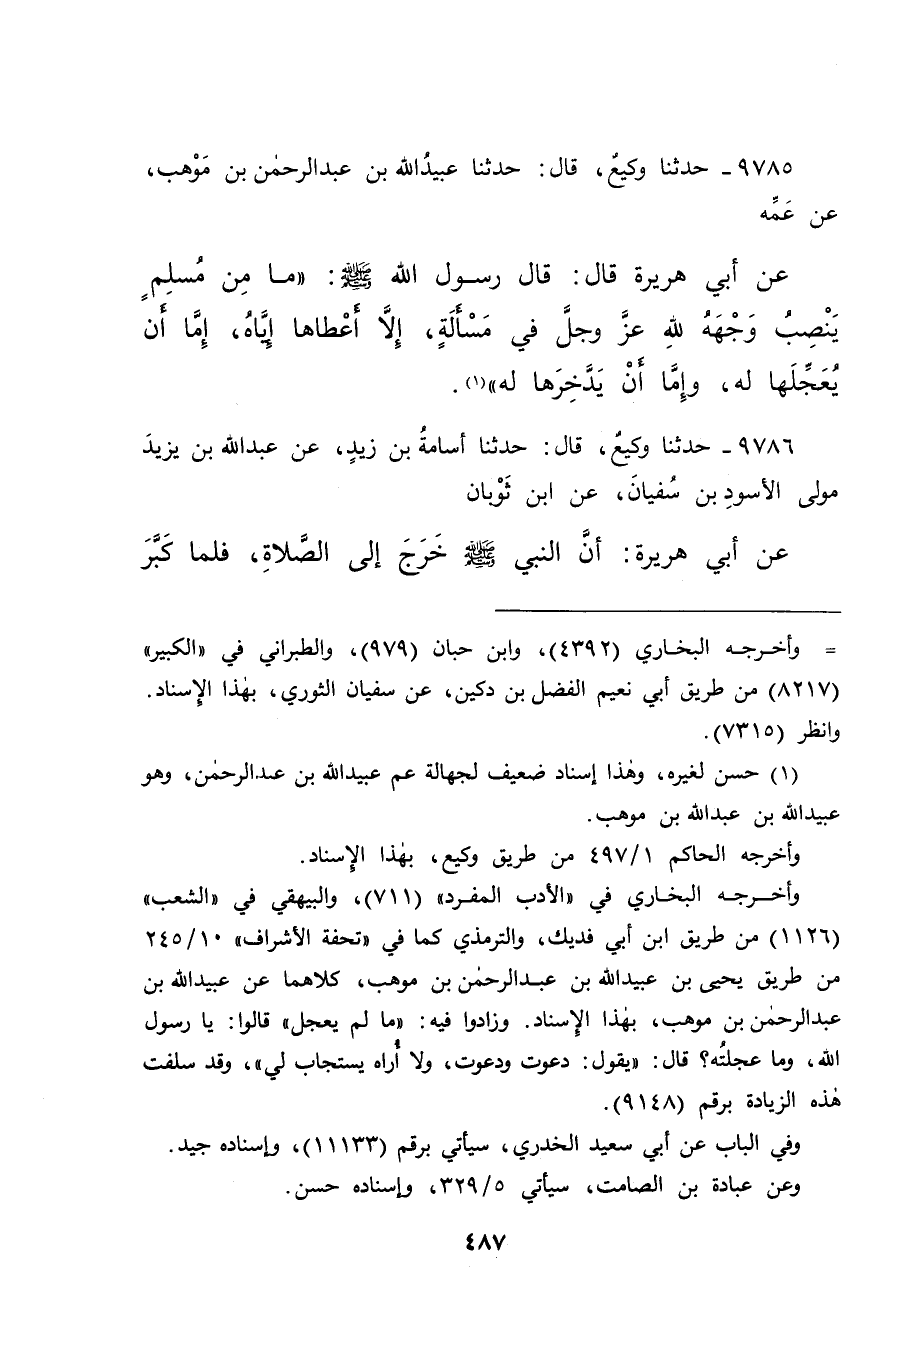 ٩٧٨٥ ـ حدثنا وكيعٌ، قال: حدثنا عبيدُالله بن عبدالرحمٰن بن مَوْهب،
عن عَمِّه
عن أبي هريرة قال: قال رسـول الله ﷺ: «مـا مِن مُسلِمٍ
يَنْصِبُ وَجْهَهُ للهِ عزَّ وجلَّ في مَسْأَلَةٍ، إِلَّا أَعْطاها إِيَّاهُ، إِمَّا أَن
يُعَجِّلَها له، وإِمَّا أَنْ يَدَّخِرَها له»(١).
٩٧٨٦ ـ حدثنا وكيعٌ، قال: حدثنا أسامةُ بن زيدٍ، عن عبدالله بن يزيدَ
مولى الأسودِ بن سُفيانَ، عن ابن ثَوْبان
عن أبي هريرة: أنَّ النبي ﷺ خَرَجَ إلى الصَّلاةِ، فلما كَبَّرَ
= وأخـرجـه البخـاري (٤٣٩٢)، وابن حبان (٩٧٩)، والطبراني في «الكبير»
(٨٢١٧) من طريق أبي نعيم الفضل بن دكين، عن سفيان الثوري، بهٰذا الإِسناد.
وانظر (٧٣١٥).
(١) حسن لغيره، وهٰذا إسناد ضعيف لجهالة عم عبيدالله بن عبدالرحمٰن، وهو
عبيدالله بن عبدالله بن موهب.
وأخرجه الحاكم ٤٩٧/١ من طريق وكيع، بهٰذا الإِسناد.
وأخـــرجـه البخاري في «الأدب المفرد» (٧١١)، والبيهقي في «الشعب»
(١١٢٦) من طريق ابن أبي فديك، والترمذي كما في «تحفة الأشراف» ٢٤٥/١٠
من طريق يحيى بن عبيدالله بن عبـدالرحمٰن بن موهب، كلاهما عن عبيدالله بن
عبدالرحمٰن بن موهب، بهٰذا الإِسناد. وزادوا فيه: «ما لم يعجل» قالوا: يا رسول
الله، وما عجلتُه؟ قال: «يقول: دعوت ودعوت، ولا أُراه يستجاب لي»، وقد سلفت
هٰذه الزيادة برقم (٩١٤٨).
وفي الباب عن أبي سعيد الخدري، سيأتي برقم (١١١٣٣)، وإسناده جيد.
وعن عبادة بن الصامت، سيأتي ٣٢٩/٥، وإسناده حسن.
٤٨٧